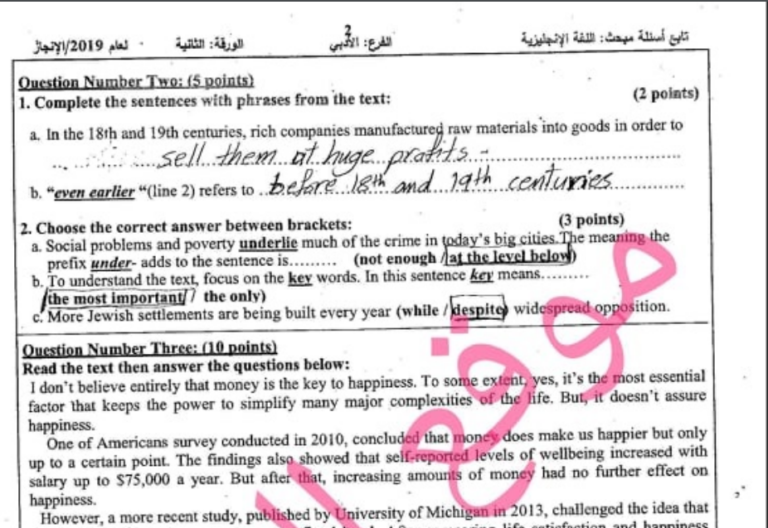 تابع أسئلة مبحث: اللغة الإنجليزية الفرع: الأدبي 2 الورقة: الثانية لعام 2019/الإنجاز
Question Number Two: (5 points)
1. Complete the sentences with phrases from the text: (2 points)
a. In the 18th and 19th centuries, rich companies manufactured raw materials into goods in order to
sell them at huge profits
b. "even earlier "(line 2) refers to ..before 18th and 19th centuries
2. Choose the correct answer between brackets: (3 points)
a. Social problems and poverty underlie much of the crime in today's big cities.The meaning the
prefix under- adds to the sentence is......... (not enough / at the level below)
b. To understand the text, focus on the key words. In this sentence key means..........
(the most important / the only)
c. More Jewish settlements are being built every year (while / despite) widespread opposition.
Question Number Three: (10 points)
Read the text then answer the questions below:
I don't believe entirely that money is the key to happiness. To some extent, yes, it's the most essential
factor that keeps the power to simplify many major complexities of the life. But, it doesn't assure
happiness.
One of Americans survey conducted in 2010, concluded that money does make us happier but only
up to a certain point. The findings also showed that self-reported levels of wellbeing increased with
salary up to $75,000 a year. But after that, increasing amounts of money had no further effect on
happiness.
However, a more recent study, published by University of Michigan in 2013, challenged the idea that
life satisfaction and happiness
موقع